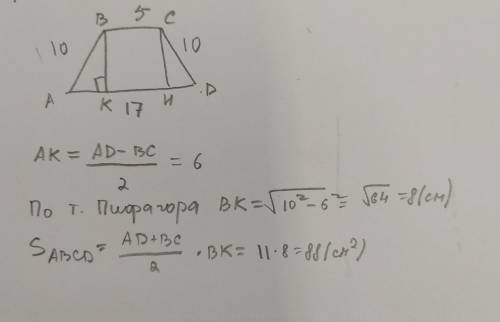 5
B C
10 10
A K 17 H D
AK = (AD - BC)/2 = 6
По т. Пифагора BK = √(10² - 6²) = √64 = 8(см)
S_ABCD = (AD + BC)/2 · BK = 11 · 8 = 88(см²)